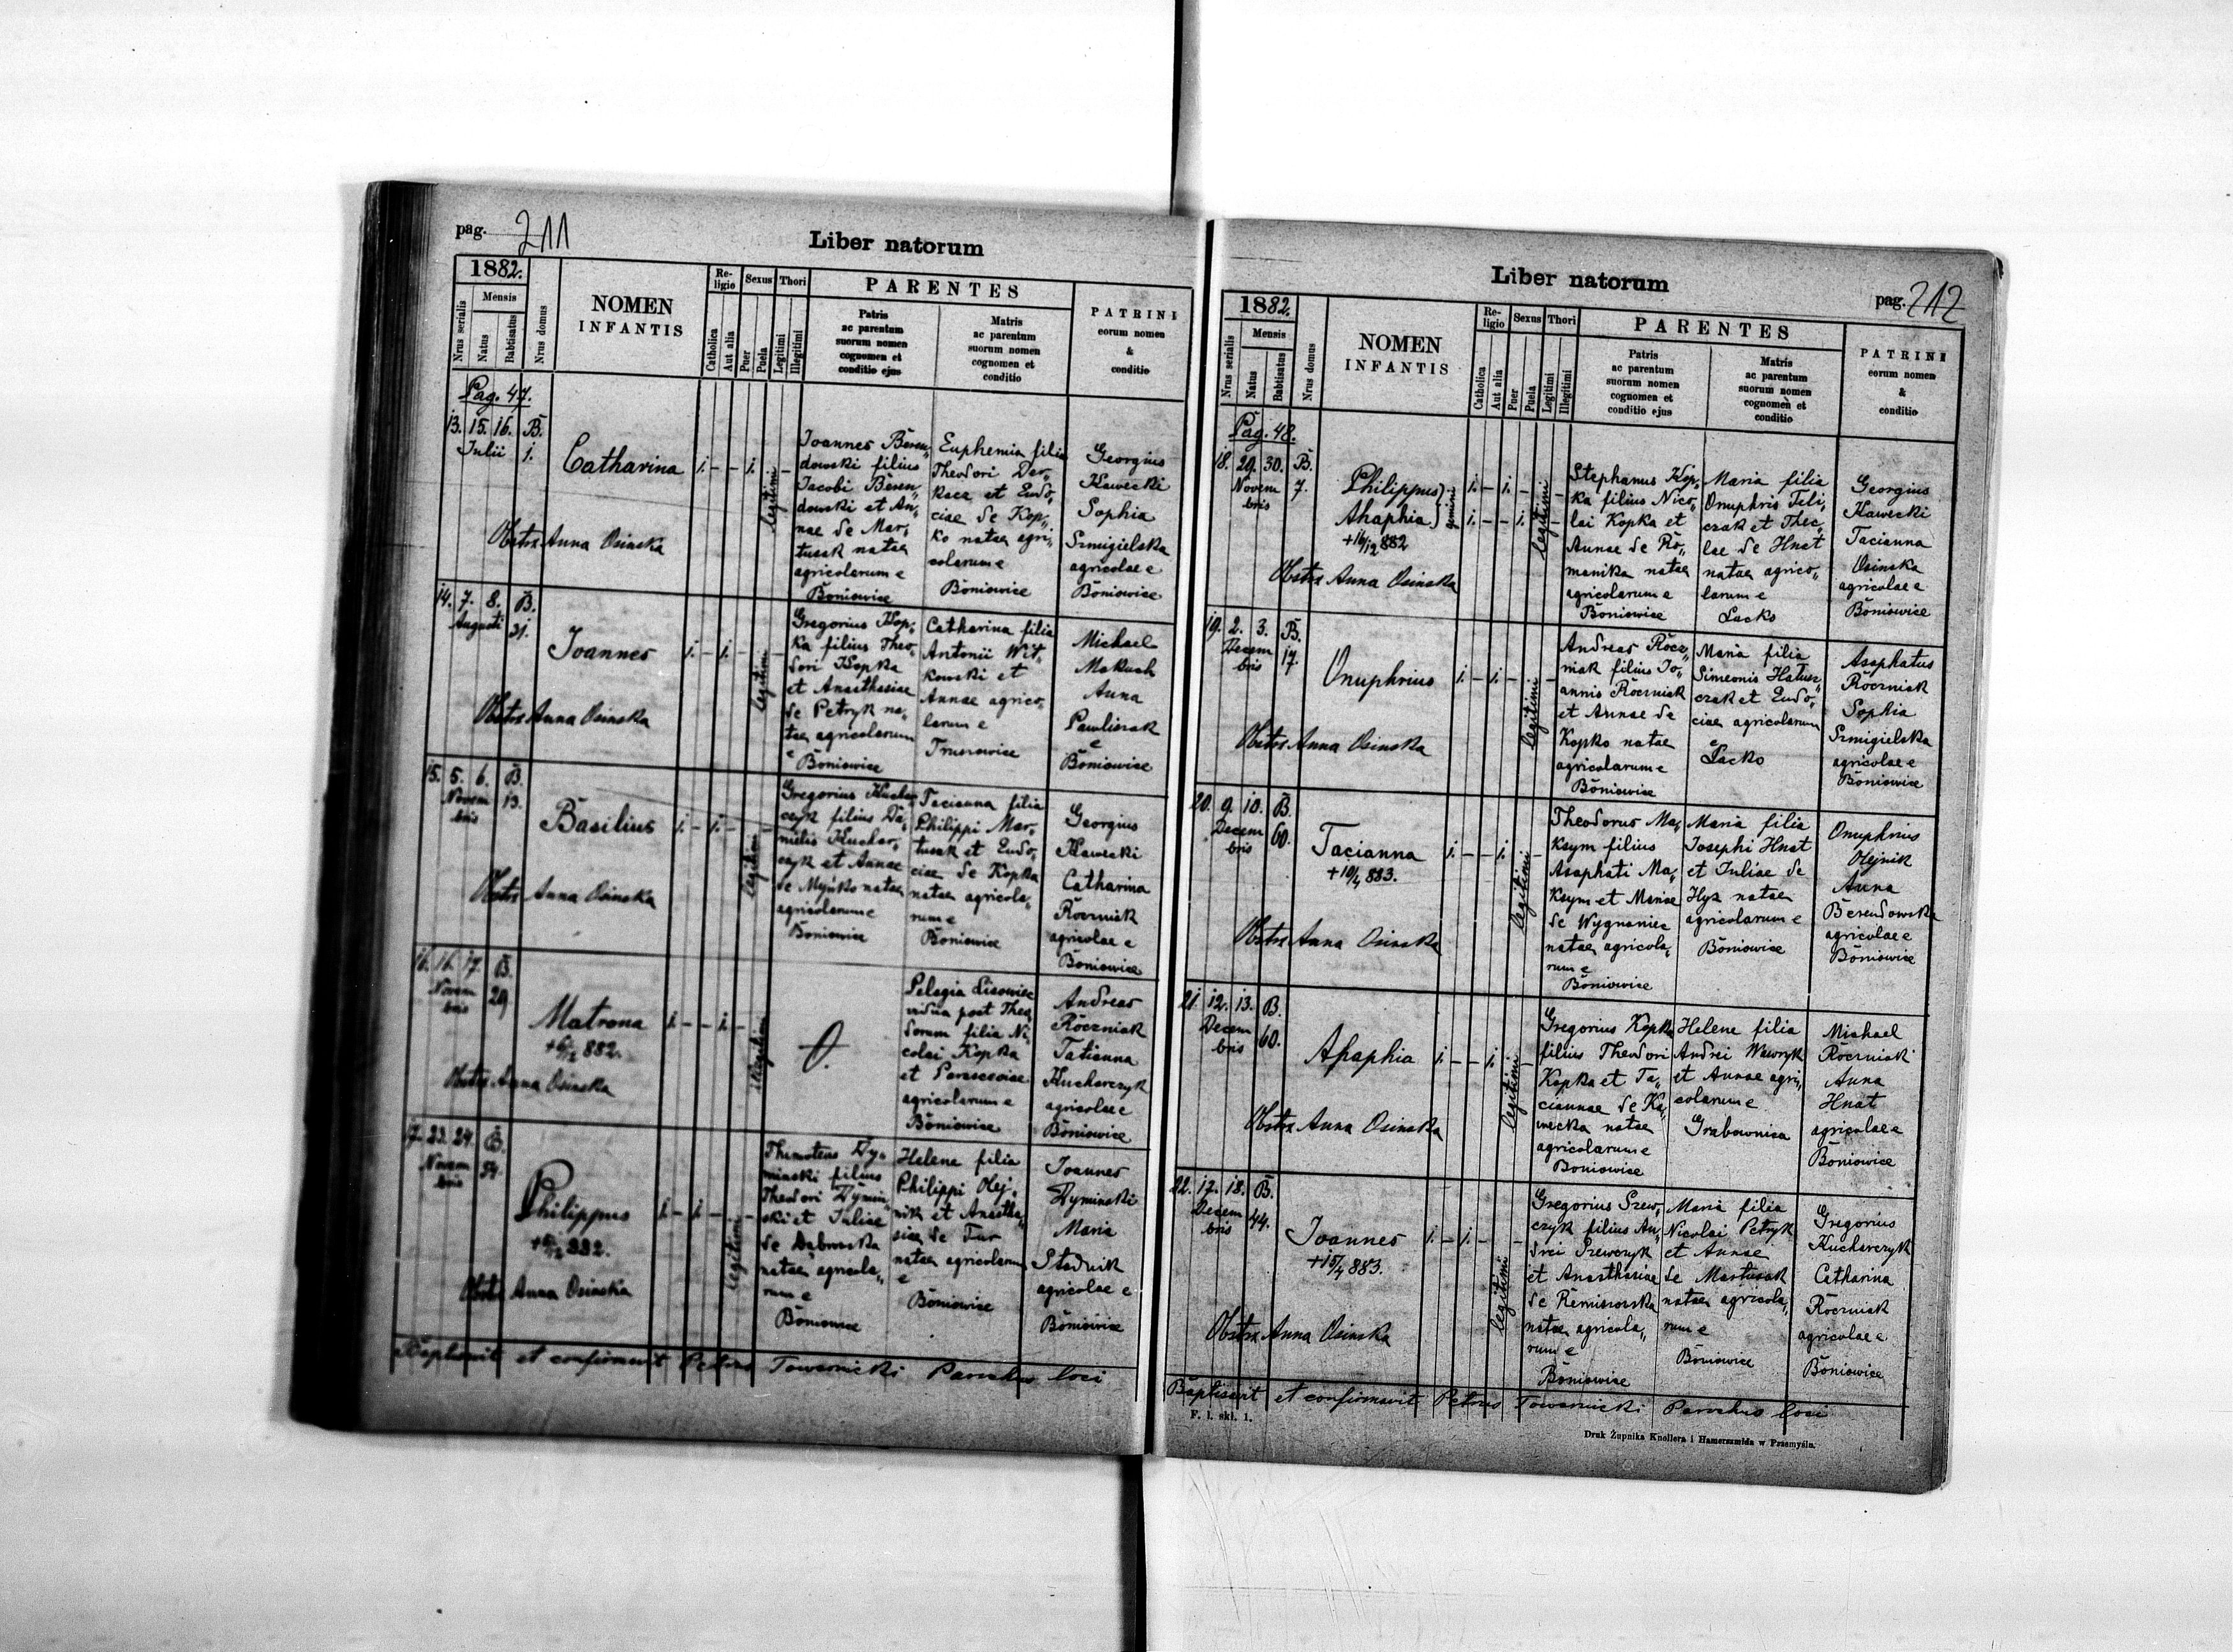 pag. 211
Liber natorum
1882.
Mensis
Nrus serialis
Natus
Babtisatus
Nrus domus
NOMEN
INFANTIS
Re-
ligio
Sexus
Thori
Catholica
Aut alia
Puer
Puela
Legitimi
Illegitimi
PARENTES
Patris
ac parentum
suorum nomen
cognomen et
conditio ejus
Matris
ac parentum
suorum nomen
cognomen et
conditio
PATRINI
eorum nomen
&
conditio
Pag. 47.
13. 15. 16. B.
Julii 1.
Catharina
1. – – 1. –
legitimi
Obstx Anna Osinska
Joannes Beren„
dowski filius
Jacobi Beren„
dowski et An„
nae de Mar„
tusak natae
agricolarum e
Boniowice
Euphemia filia
Theodori Der„
kacz et Eudo„
ciae de Kop„
ko natae agri„
colarum e
Boniowice
Georgius
Kawecki
Sophia
Szmigielska
agricolae e
Boniowice
14. 7. 8. B.
Augusti 31.
Joannes
1. – 1. – –
legitimi
Obstx Anna Osinska
Gregorius Kop„
ka filius Theo„
dori Kopka
et Anasthasiae
de Petryk na„
tae agricolarum
e Boniowice
Catharina filia
Antonii Wit„
kowski et
Annae agrico„
larum e
Truszowice
Michael
Makuch
Anna
Pawliszak
e
Boniowice
15. 5. 6. B.
Novem
bris 13.
Basilius
1. – 1. – –
legitimi
Obstx Anna Osinska
Gregorius Kuchar
czyk filius Da„
nielis Kuchar„
czyk et Annae
de Myńko natae
agricolarum e
Boniowice
Tacianna filia
Philippi Mar„
tusak et Eudo„
ciae de Kopka
natae agricola„
rum e
Boniowice
Georgius
Kawecki
Catharina
Roczniak
agricolae e
Boniowice
16. 16. 17. B.
Novem
bris 29
Matrona
+ 6/12 882.
1. – – 1. –
illegitimi
Obstx Anna Osinska
O.
Pelagia Lisowiec
vidua post Theo
dorum filia Ni„
colai Kopka
et Parasceviae
agricolarum e
Boniowice
Andreas
Roczniak
Tatianna
Kucharczyk
agricolae e
Boniowice
17. 23. 24. B.
Novem
bris 54.
Philippus
1. – 1. – –
legitimi
Obstx Anna Osinska
Thimoteus Dy„
minski filius
Theodori Dymin„
ski et Juliae
de Dabrowska
natae agricola„
rum e
Boniowice
Helene filia
Philippi Olej„
nik et Anastha„
siae de Fur
natae agricolarum
e
Boniowice
Joannes
Dyminski
Maria
Stadnik
agricolae e
Boniowice
Baptisavit et confirmavit Petrus Towarnicki Parochus loci
Liber natorum
pag. 212
1882.
Mensis
Nrus serialis
Natus
Babtisatus
Nrus domus
NOMEN
INFANTIS
Re-
ligio
Sexus
Thori
Catholica
Aut alia
Puer
Puela
Legitimi
Illegitimi
PARENTES
Patris
ac parentum
suorum nomen
cognomen et
conditio ejus
Matris
ac parentum
suorum nomen
cognomen et
conditio
PATRINI
eorum nomen
&
conditio
Pag. 48.
18. 29. 30. B.
Novem
bris 7.
Philippus
Ahaphia
gemini
+ 16/12 882
1. – 1. – –
1. – – 1. –
legitimi
Obstx Anna Osinska
Stephanus Kop„
ka filius Nico„
lai Kopka et
Annae de Ro„
manika natae
agricolarum e
Boniowice
Maria filia
Onuphris Fili„
czak et Thec„
lae de Hnat
natae agrico„
larum e
Lacko
Georgius
Kawecki
Tacianna
Osinska
agricolae e
Boniowice
19. 2. 3. B.
Decem
bris 17.
Onuphrius
1. – 1. – –
legitimi
Obstx Anna Osinska
Andreas Rocz„
niak filius Jo„
annis Roczniak
et Annae de
Kopko natae
agricolarum e
Boniowice
Maria filia
Simeonis Hatusz„
czak et Eudo„
ciae agricolarum
e
Lacko
Asaphatus
Roczniak
Sophia
Szmigielska
agricolae e
Boniowice
20. 9. 10. B.
Decem
bris 60.
Tacianna
+ 10/4 883.
1. – – 1. –
legitimi
Obstx Anna Osinska
Theodorus Ma„
ksym filius
Asaphati Ma„
ksym et Mariae
de Wygnaniec
natae agricola„
rum e
Boniowice
Maria filia
Josephi Hnat
et Juliae de
Hyz natae
agricolarum e
Boniowice
Onuphrius
Olejnik
Anna
Berendowska
agricolae e
Boniowice
21. 12. 13. B.
Decem
bris 60.
Ahaphia
1. – – 1. –
legitimi
Obstx Anna Osinska
Gregorius Kopka
filius Theodori
Kopka et Ta„
ciannae de Ka„
wecka natae
agricolarum e
Boniowice
Helene filia
Andrei Wawryk
et Annae agri„
colarum e
Grabownica
Michael
Roczniak
Anna
Hnat
agricolae e
Boniowice
22. 17. 18. B.
Decem
bris 44.
Joannes
+ 15/4 883.
1. – 1. – –
legitimi
Obstx Anna Osinska
Gregorius Szew„
czyk filius An„
drei Szewczyk
et Anasthasiae
de Remiszowska
natae agricola„
rum e
Boniowice
Maria filia
Nicolai Petryk
et Annae
de Martusak
natae agricola„
rum e
Boniowice
Gregorius
Kucharczyk
Catharina
Roczniak
agricolae e
Boniowice
Baptisavit et confirmavit Petrus Towarnicki Parochus loci
F. l. skł. 1.
Druk Żupnika Knollera i Hamerszmida w Przemyślu.